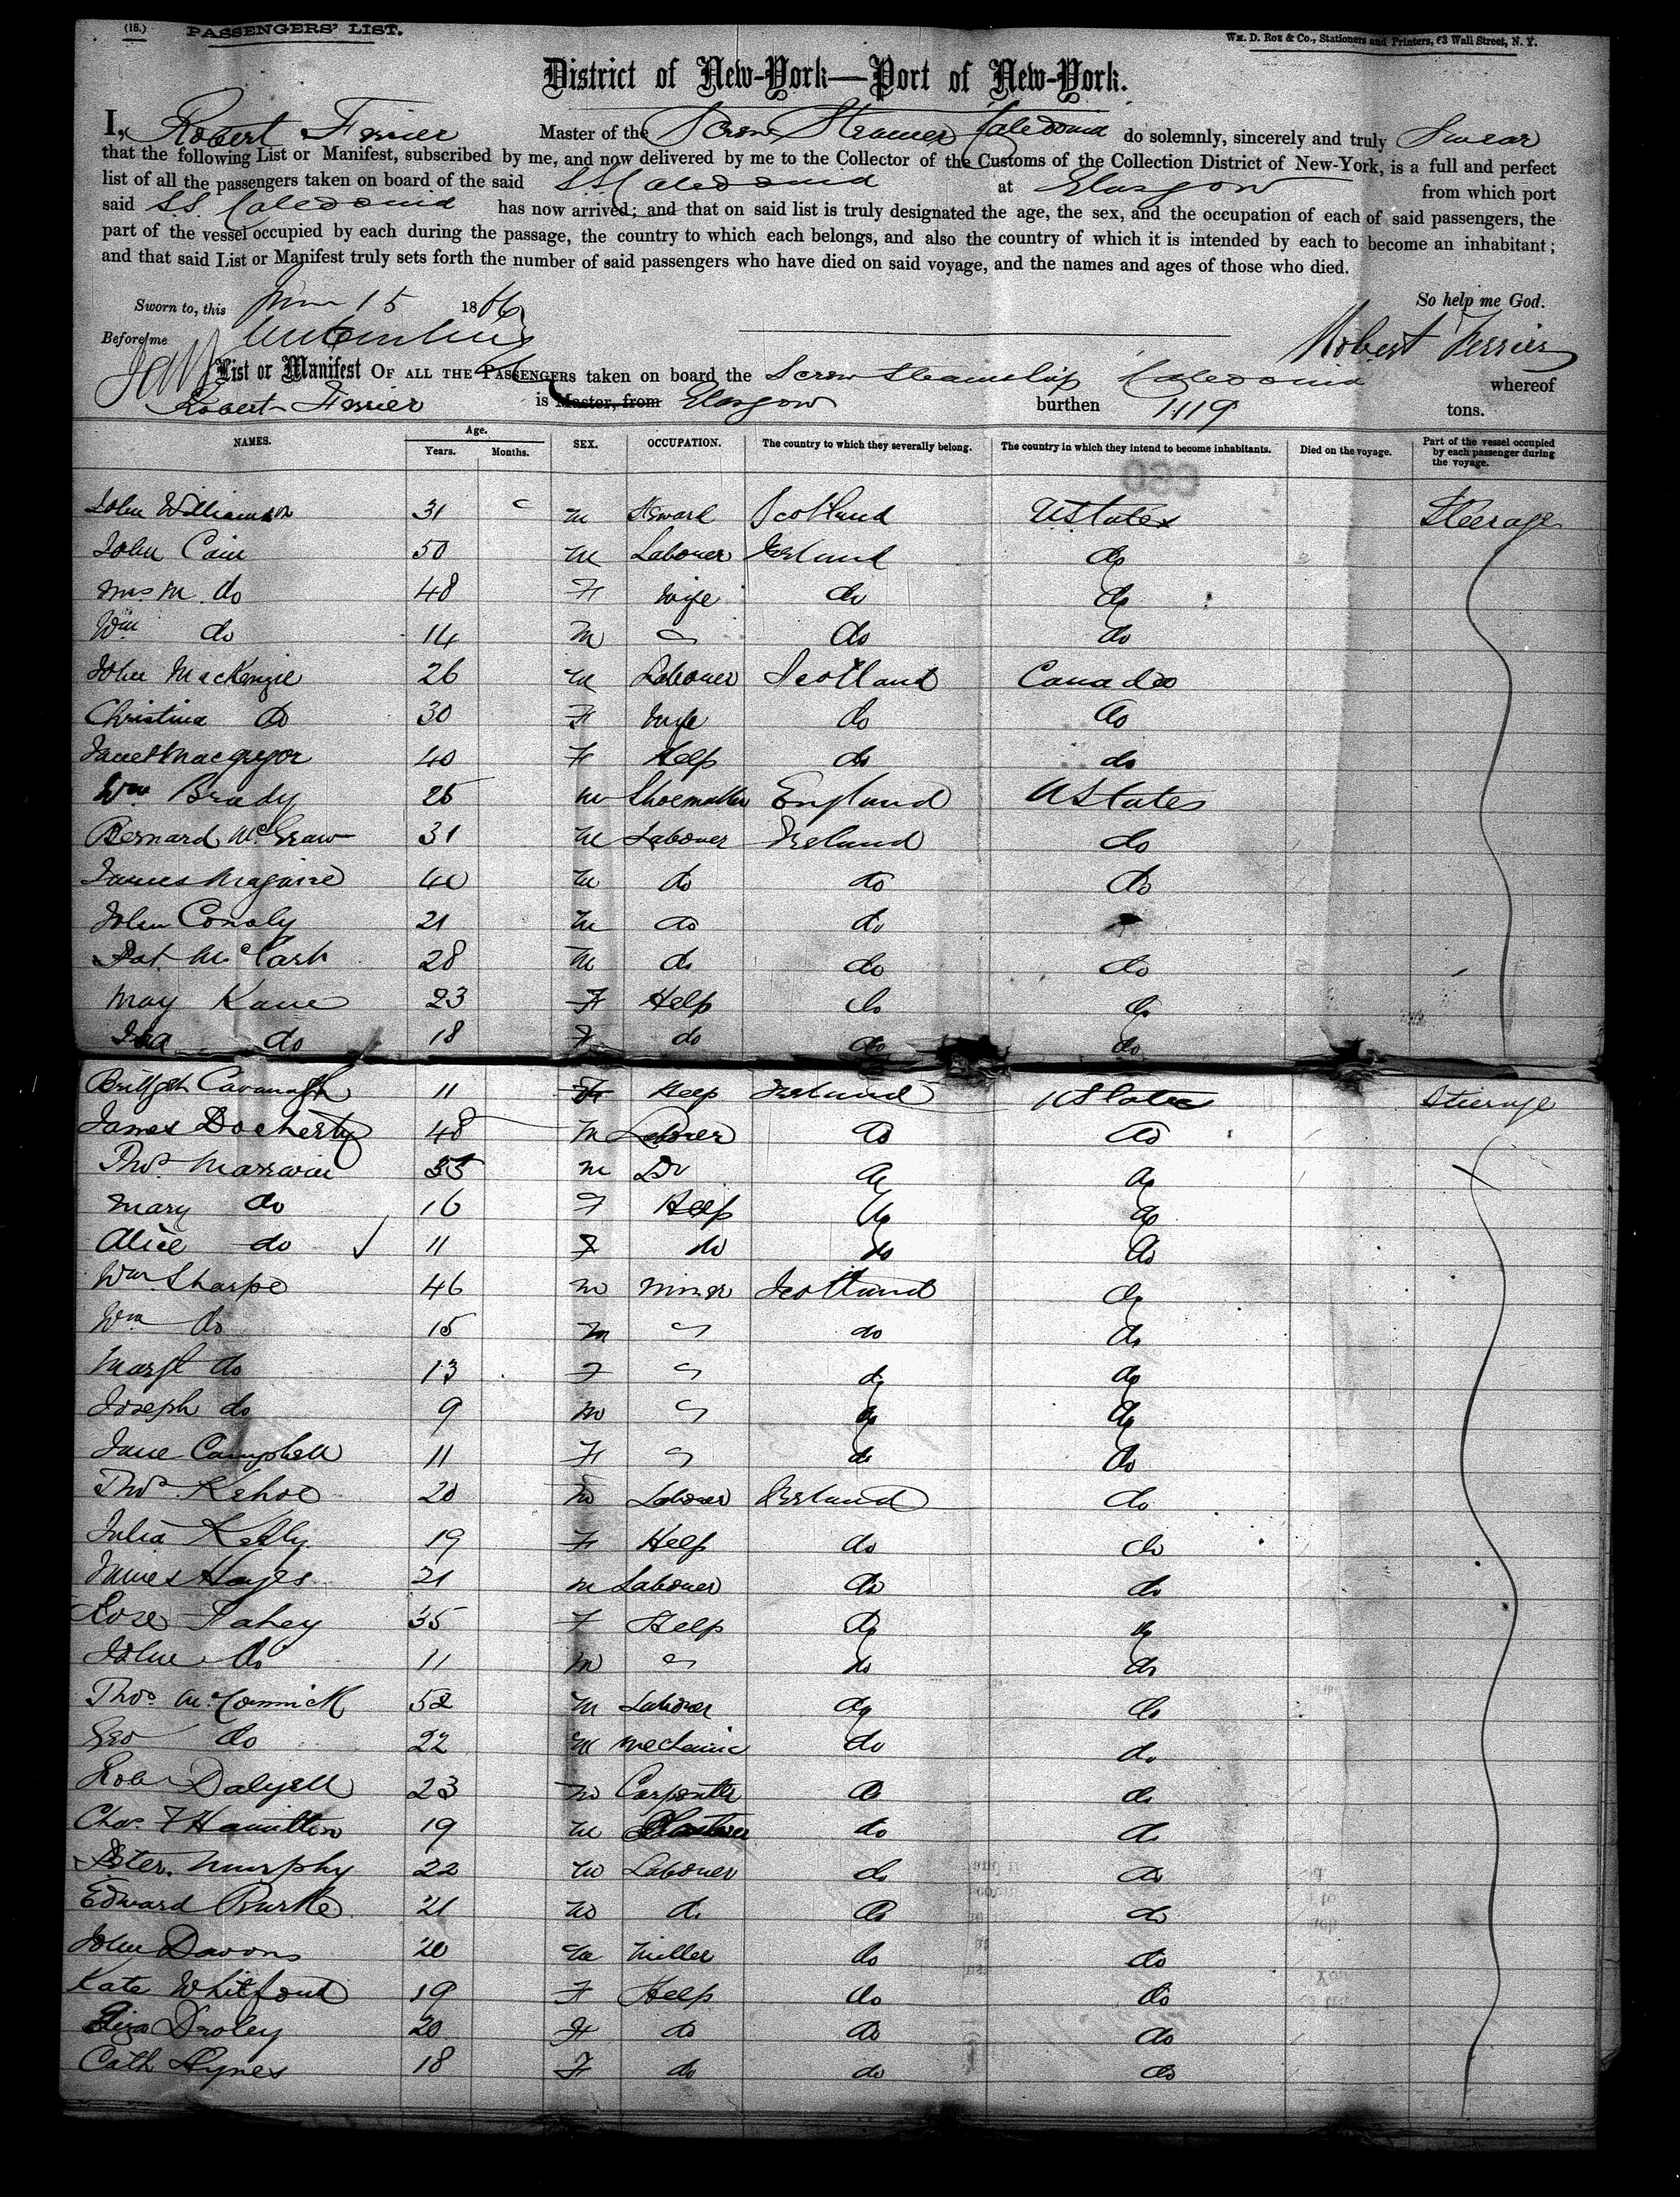 (18.) PASSENGERS' LIST. Wm. D. Roe & Co., Stationers and Printers, 63 Wall Street, N. Y.
District of New-York—Port of New-York.
I, Robert Ferrier Master of the Screw Steamer Caledonia do solemnly, sincerely and truly Swear
that the following List or Manifest, subscribed by me, and now delivered by me to the Collector of the Customs of the Collection District of New-York, is a full and perfect
list of all the passengers taken on board of the said S.S. Caledonia at Glasgow from which port
said S.S. Caledonia has now arrived; and that on said list is truly designated the age, the sex, and the occupation of each of said passengers, the
part of the vessel occupied by each during the passage, the country to which each belongs, and also the country of which it is intended by each to become an inhabitant;
and that said List or Manifest truly sets forth the number of said passengers who have died on said voyage, and the names and ages of those who died.
Sworn to, this 15 1866 So help me God.
Before me Robert Ferrier
List or Manifest OF ALL THE PASSENGERS taken on board the Screw Steamship Caledonia whereof
Robert Ferrier is Master, from Glasgow burthen 1119 tons.
NAMES. Age. Years. Months. SEX. OCCUPATION. The country to which they severally belong. The country in which they intend to become inhabitants. Died on the voyage. Part of the vessel occupied by each passenger during the voyage.
John Williamson 31 M Steward Scotland UStates Steerage
John Cain 50 M Labourer Ireland do
Mrs M. do 48 F Wife do do
Wm do 14 M do do
John MacKenzie 26 M Labourer Scotland Canada
Christina do 30 F Wife do do
Janet Macgregor 40 F Help do do
Wm Brady 25 M Shoemaker England UStates
Bernard McGraw 31 M Labourer Ireland do
James Maguire 40 M do do do
John Conoly 21 M do do
Pat McCash 28 M do do do
May Kane 23 F Help do do
Isa do 18 F do do do
Bridget Cavanagh 11 F Help Ireland UStates Steerage
James Docherty 48 M Labourer do do
Thos 35 M Do do do
Mary do 16 F Help do do
Alice do 11 F do do do
Wm Sharpe 46 M Miner Scotland do
Wm do 15 M do do
Margt do 13 F do do
Joseph do 9 M do do
Jane Campbell 11 F do do
Thos Kehoe 20 M Labourer Ireland do
Julia Kelly 19 F Help do do
James Hayes 21 M Labourer do do
Rose Fahey 35 F Help do do
John do 11 M do do
Thos McCormick 52 M Labourer do do
Geo do 22 M Mechanic do do
Robt Dalzell 23 M Carpenter do do
Chas F Hamilton 19 M do do
Peter Murphy 22 M Labourer do do
Edward Burke 21 M do do do
John Davons 20 M Miller do do
Kate Whitford 19 F Help do do
Eliza Droley 20 F do do do
Cath Hynes 18 F do do do